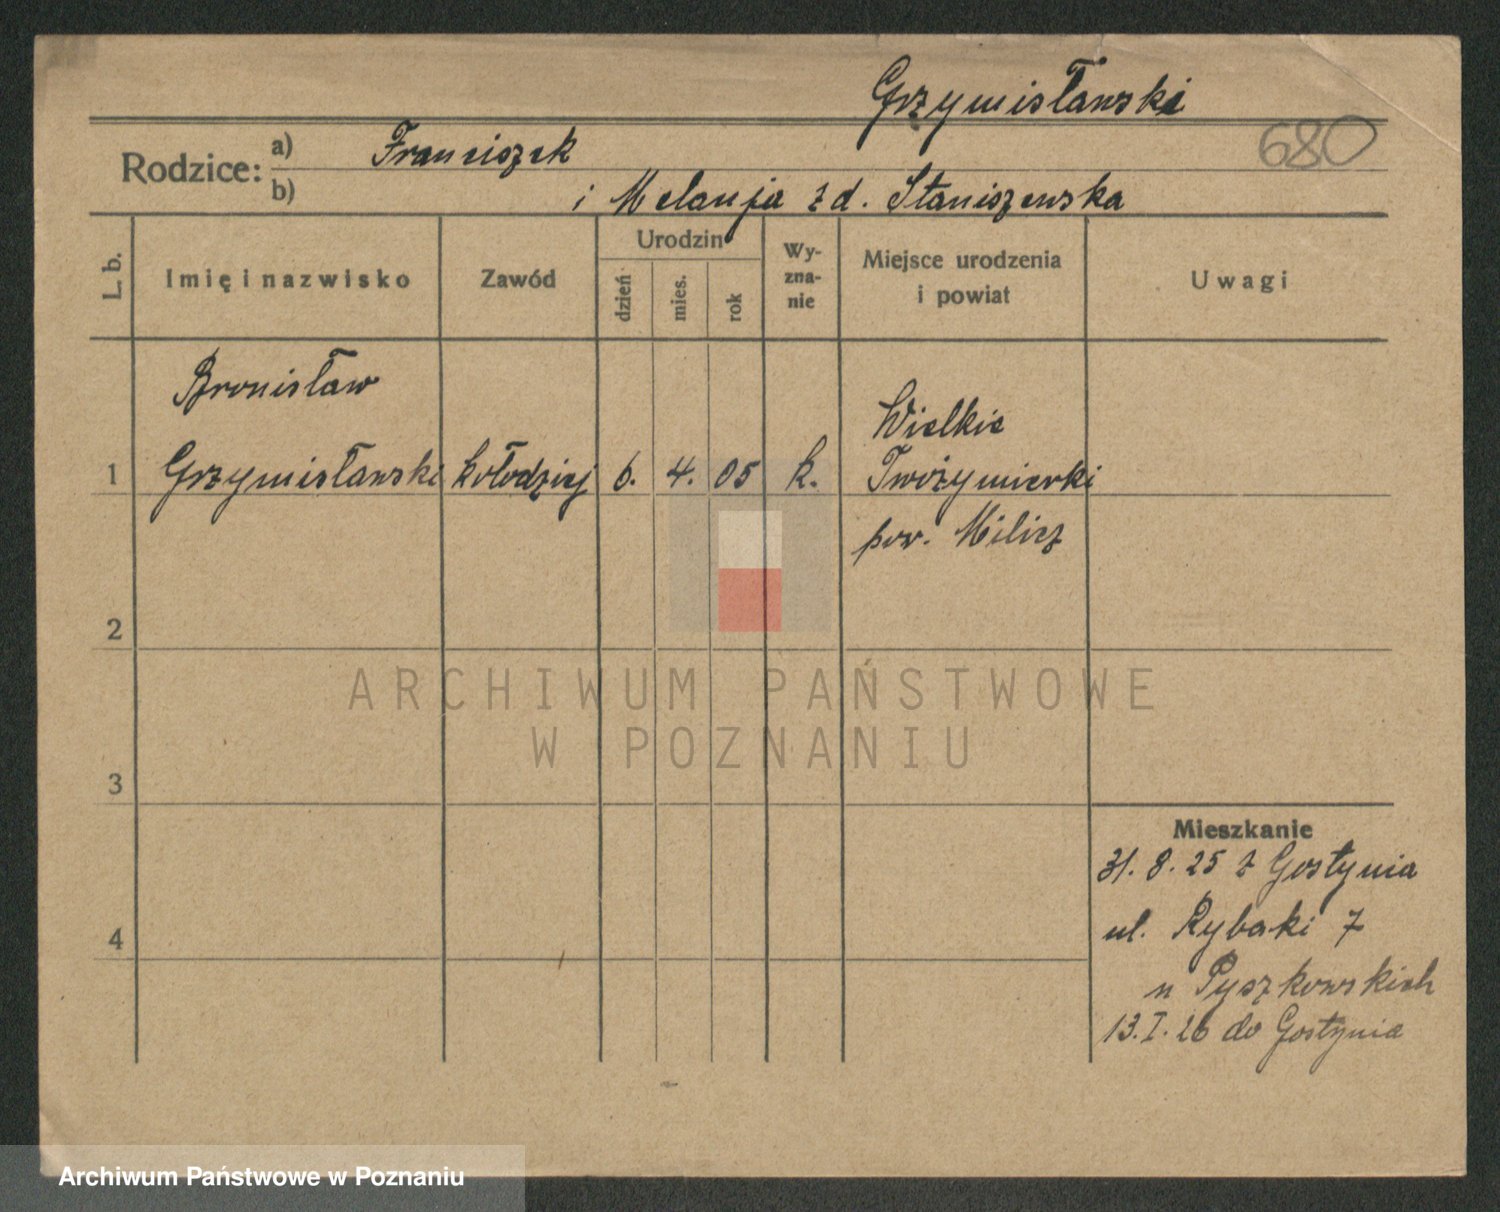 Grzymisławski
680
Rodzice: a) Franciszek
b) i Melanja z d. Staniszewska
L. b.
Imię i nazwisko
Zawód
Urodzin
dzień
mies.
rok
Wy-
zna-
nie
Miejsce urodzenia
i powiat
Uwagi
Bronisław
Wielkie
1 Grzymisławski kołodziej 6. 4. 05 k. Twożymirki
pow. Milicz
2
ARCHIWUM PAŃSTWOWE
W POZNANIU
3
Mieszkanie
31. 8. 25 z Gostynia
4 ul. Rybaki 7
u Pyszkowskich
13. I. 26 do Gostynia
Archiwum Państwowe w Poznaniu